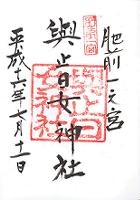 肥前一之宮
與止日女神社
平成十六年七月十一日